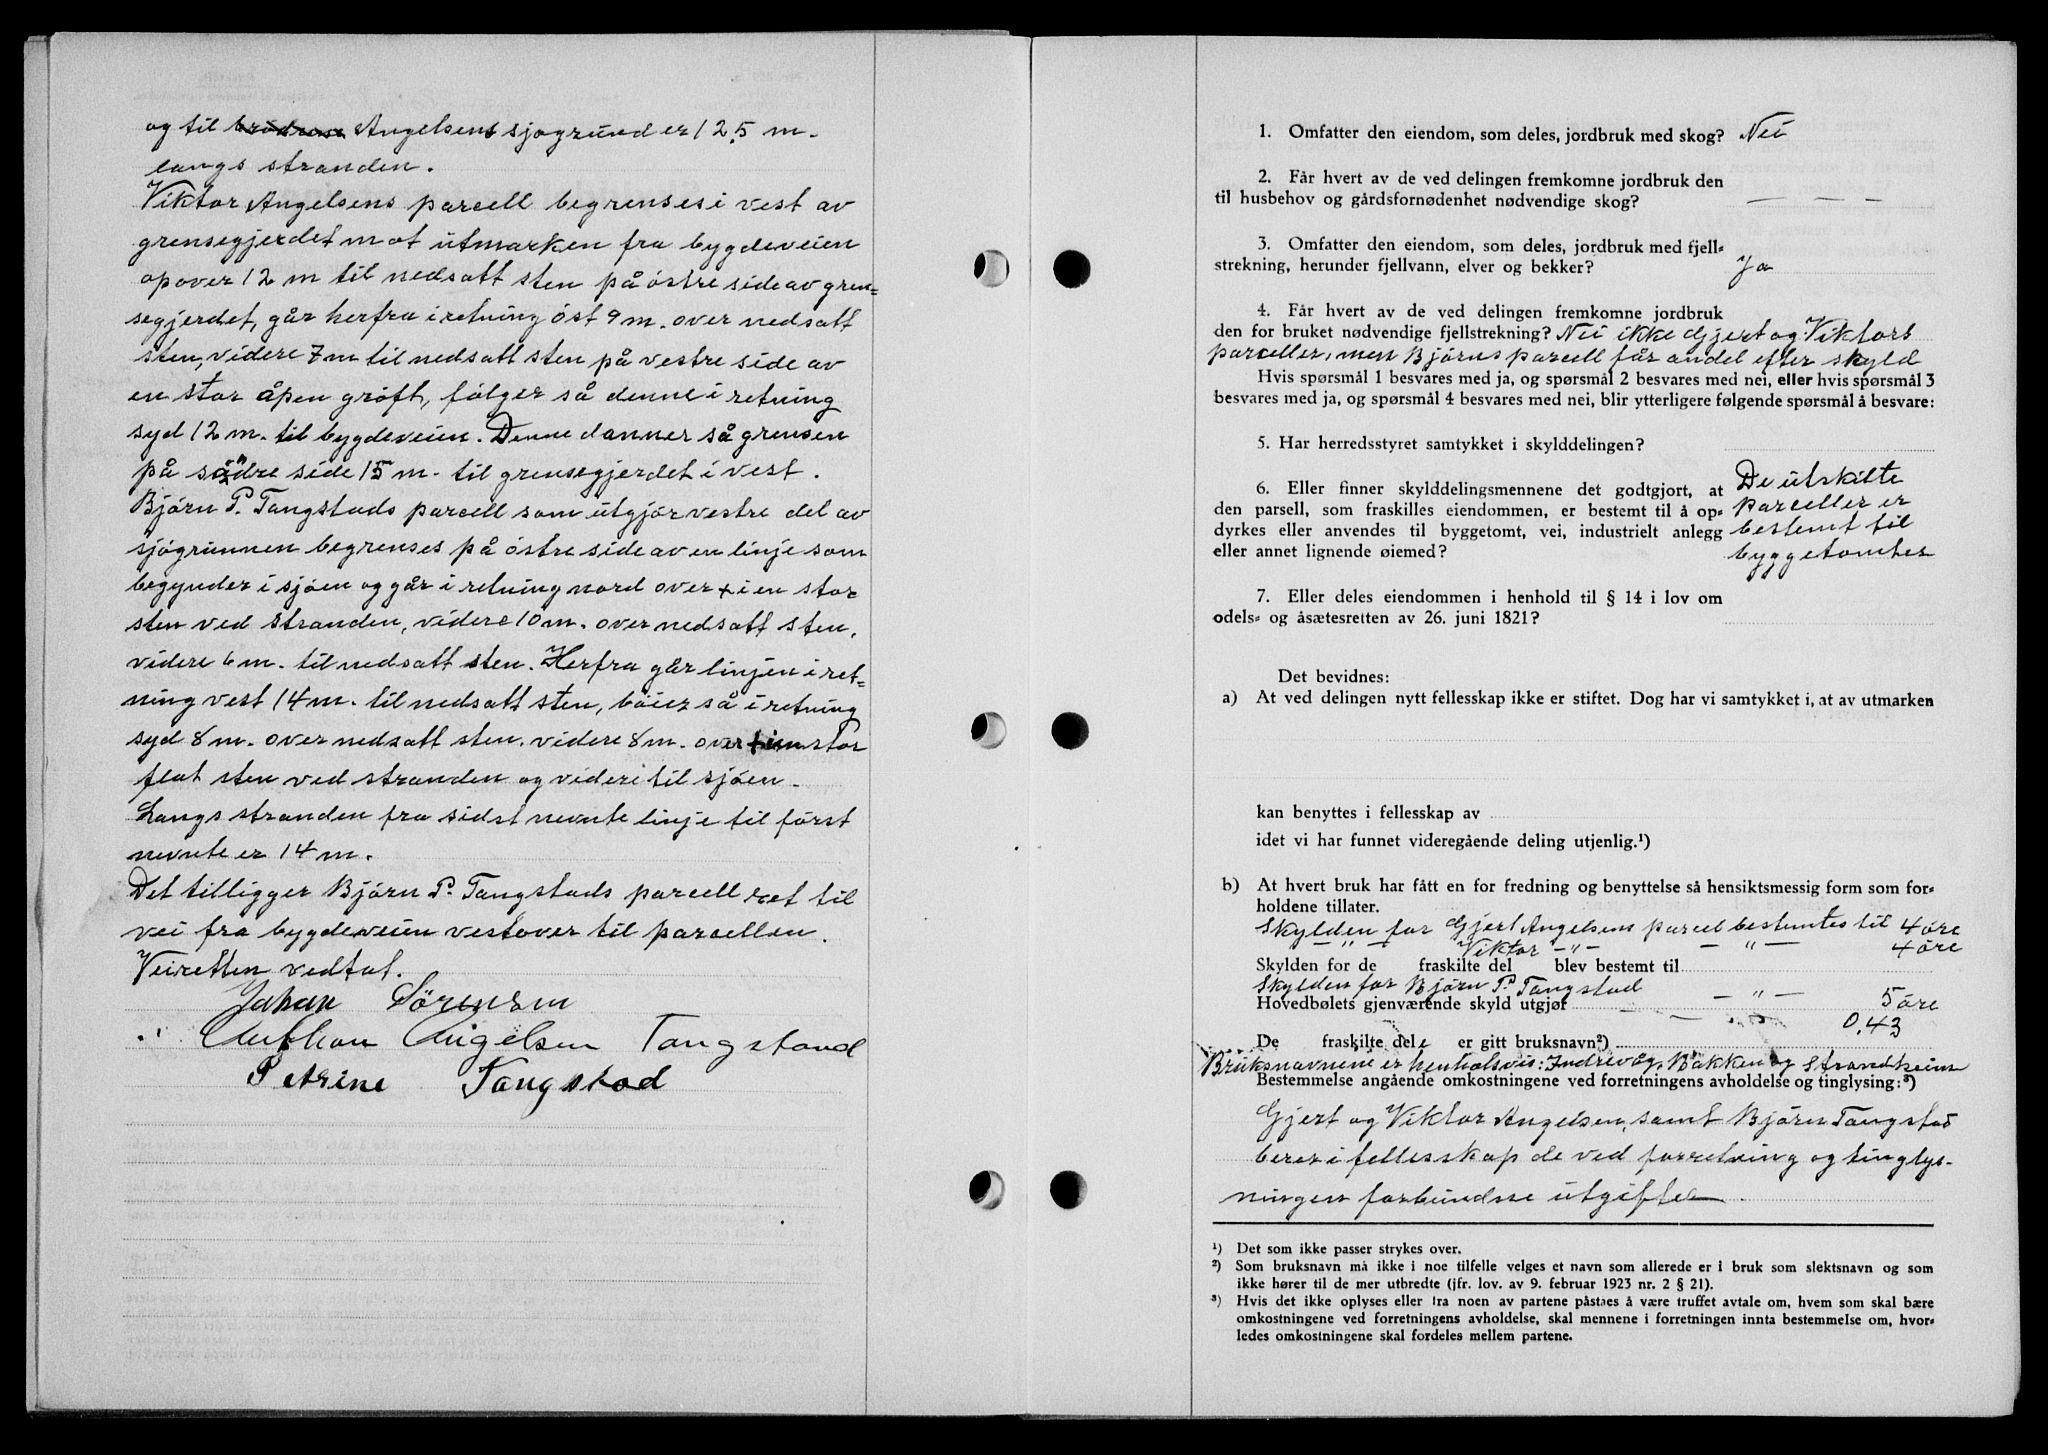 og til brødrene Angelsens sjøgrund er 12,5 m.
langs stranden.
Viktor Angelsens parcell begrenses i vest av
grensegjerdet mot utmarken fra bygdeveien
opover 12 m til nedsatt sten på østre side av gren=
segjerdet, går herfra i retning øst 9 m. over nedsatt
sten, videre 7 m til nedsatt sten på vestre side av
en stor åpen grøft, følger så denne i retning
syd 12 m. til bygdeveien. Denne danner så grensen
på södre side 15 m. til grensegjerdet i vest.
Bjørn P. Tangstads parcell som utgjør vestre del av
sjøgrunnen begrenses på østre side av en linje som
begynder i sjøen og går i retning nord over + i en stor
sten ved stranden, videre 10 m. over nedsatt sten,
videre 6 m. til nedsatt sten. Herfra går linjen i ret=
ning vest 14 m. til nedsatt sten, bøier så i retning
syd 8 m. over nedsatt sten, videre 8 m. over + i en stor
flat sten ved stranden og videre til sjøen.
Langs stranden fra sidst nevnte linje til først
nevnte er 14 m.
Det tilligger Bjørn P. Tangstads parcell ret til
vei fra bygdeveien vestover til parcellen.
Veiretten vedtat.
Johan Sörensen
Anthon Angelsen Tangstad
Petrine Tangstad
1. Omfatter den eiendom, som deles, jordbruk med skog? Nei
2. Får hvert av de ved delingen fremkomne jordbruk den
til husbehov og gårdsfornødenhet nødvendige skog? — — —
3. Omfatter den eiendom, som deles, jordbruk med fjell=
strekning, herunder fjellvann, elver og bekker? Ja
4. Får hvert av de ved delingen fremkomne jordbruk
den for bruket nødvendige fjellstrekning? Nei ikke Gjert og Viktors
parceller, men Bjørns parcell får andel efter skyld
Hvis spørsmål 1 besvares med ja, og spørsmål 2 besvares med nei, eller hvis spørsmål 3
besvares med ja, og spørsmål 4 besvares med nei, blir ytterligere følgende spørsmål å besvare:
5. Har herredsstyret samtykket i skylddelingen?
6. Eller finner skylddelingsmennene det godtgjort, at
den parsell, som fraskilles eiendommen, er bestemt til å op=
dyrkes eller anvendes til byggetomt, vei, industrielt anlegg
eller annet lignende øiemed?
De utskilte
parceller er
bestemt til
byggetomter
7. Eller deles eiendommen i henhold til § 14 i lov om
odels= og åsætesretten av 26. juni 1821?
Det bevidnes:
a) At ved delingen nytt fellesskap ikke er stiftet. Dog har vi samtykket i, at av utmarken
kan benyttes i fellesskap av
idet vi har funnet videregående deling utjenlig.¹)
b) At hvert bruk har fått en for fredning og benyttelse så hensiktsmessig form som for=
holdene tillater.
Skylden for Gjert Angelsens parcel bestemtes til 4 öre
— " — Viktor — " — — " — 4 öre
Skylden for de fraskilte del blev bestemt til
Skylden for Bjørn P. Tangstad — " — 5 öre
Hovedbølets gjenværende skyld utgjør 0,43
De fraskilte dele er gitt bruksnavn²)
Bruksnavnene er henholsvis: Indrevåg, Bakken og Strandheim
Bestemmelse angående omkostningene ved forretningens avholdelse og tinglysing:³)
Gjert og Viktor Angelsen, samt Bjørn Tangstad
berer i fellesskap de ved forretning og tinglys-
ningen forbundne utgifter.
¹) Det som ikke passer strykes over.
²) Som bruksnavn må ikke i noe tilfelle velges et navn som allerede er i bruk som slektsnavn og som
ikke hører til de mer utbredte (jfr. lov. av 9. februar 1923 nr. 2 § 21).
³) Hvis det ikke oplyses eller fra noen av partene påstaes å være truffet avtale om, hvem som skal bære
omkostningene ved forretningens avholdelse, skal mennene i forretningen innta bestemmelse om, hvor=
ledes omkostningene skal fordeles mellem partene.